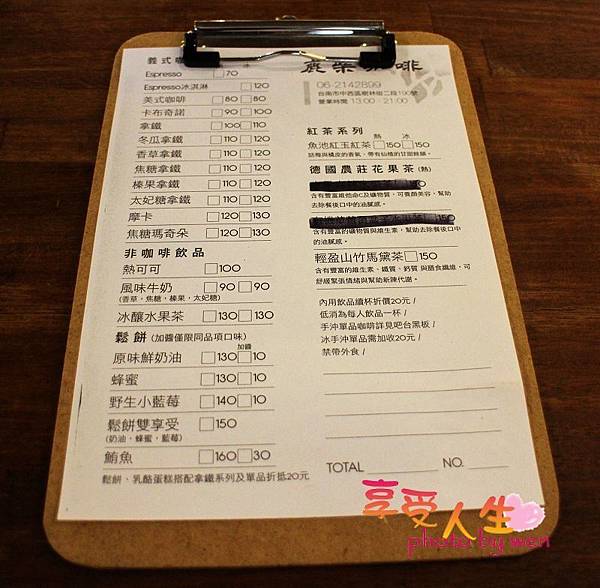 義式咖
Espresso 70
Espresso冰淇淋 120
美式咖啡 80 80
卡布奇諾 90 100
拿鐵 100 110
冬瓜拿鐵 110 120
香草拿鐵 110 120
焦糖拿鐵 110 120
榛果拿鐵 110 120
太妃糖拿鐵 110 120
摩卡 120 130
焦糖瑪奇朵 120 130
非咖啡飲品
熱可可 100
風味牛奶 90 90
(香草，焦糖，榛果，太妃糖)
冰釀水果茶 130 130
鬆餅 (加醬僅限同品項口味)
加醬
原味鮮奶油 130 10
蜂蜜 130 10
野生小藍莓 140 10
鬆餅雙享受 150
(奶油，蜂蜜，藍莓)
鮪魚 160 30
鬆餅、乳酪蛋糕搭配拿鐵系列及單品折抵20元
鹿柴咖啡
06-2142899
台南市中西區樹林街二段190號
營業時間 13:00-21:00
紅茶系列 熱 冰
魚池紅玉紅茶 150 150
德國農莊花果茶 (熱)
含有豐富維他命C及礦物質，可養顏美容，幫助
去除餐後口中的油膩感。
150
含有豐富的礦物質與維生素，幫助去除餐後口中
的油膩感。
輕盈山竹馬黛茶 150
含有豐富的維生素、鐵質、鈣質 與膳食纖維，可
舒緩緊張情緒與幫助新陳代謝。
內用飲品續杯折價20元 /
低消為每人飲品一杯 /
手沖單品咖啡詳見吧台黑板 /
冰手沖單品需加收20元 /
禁帶外食 /
TOTAL NO.
享受人生
photo by wen